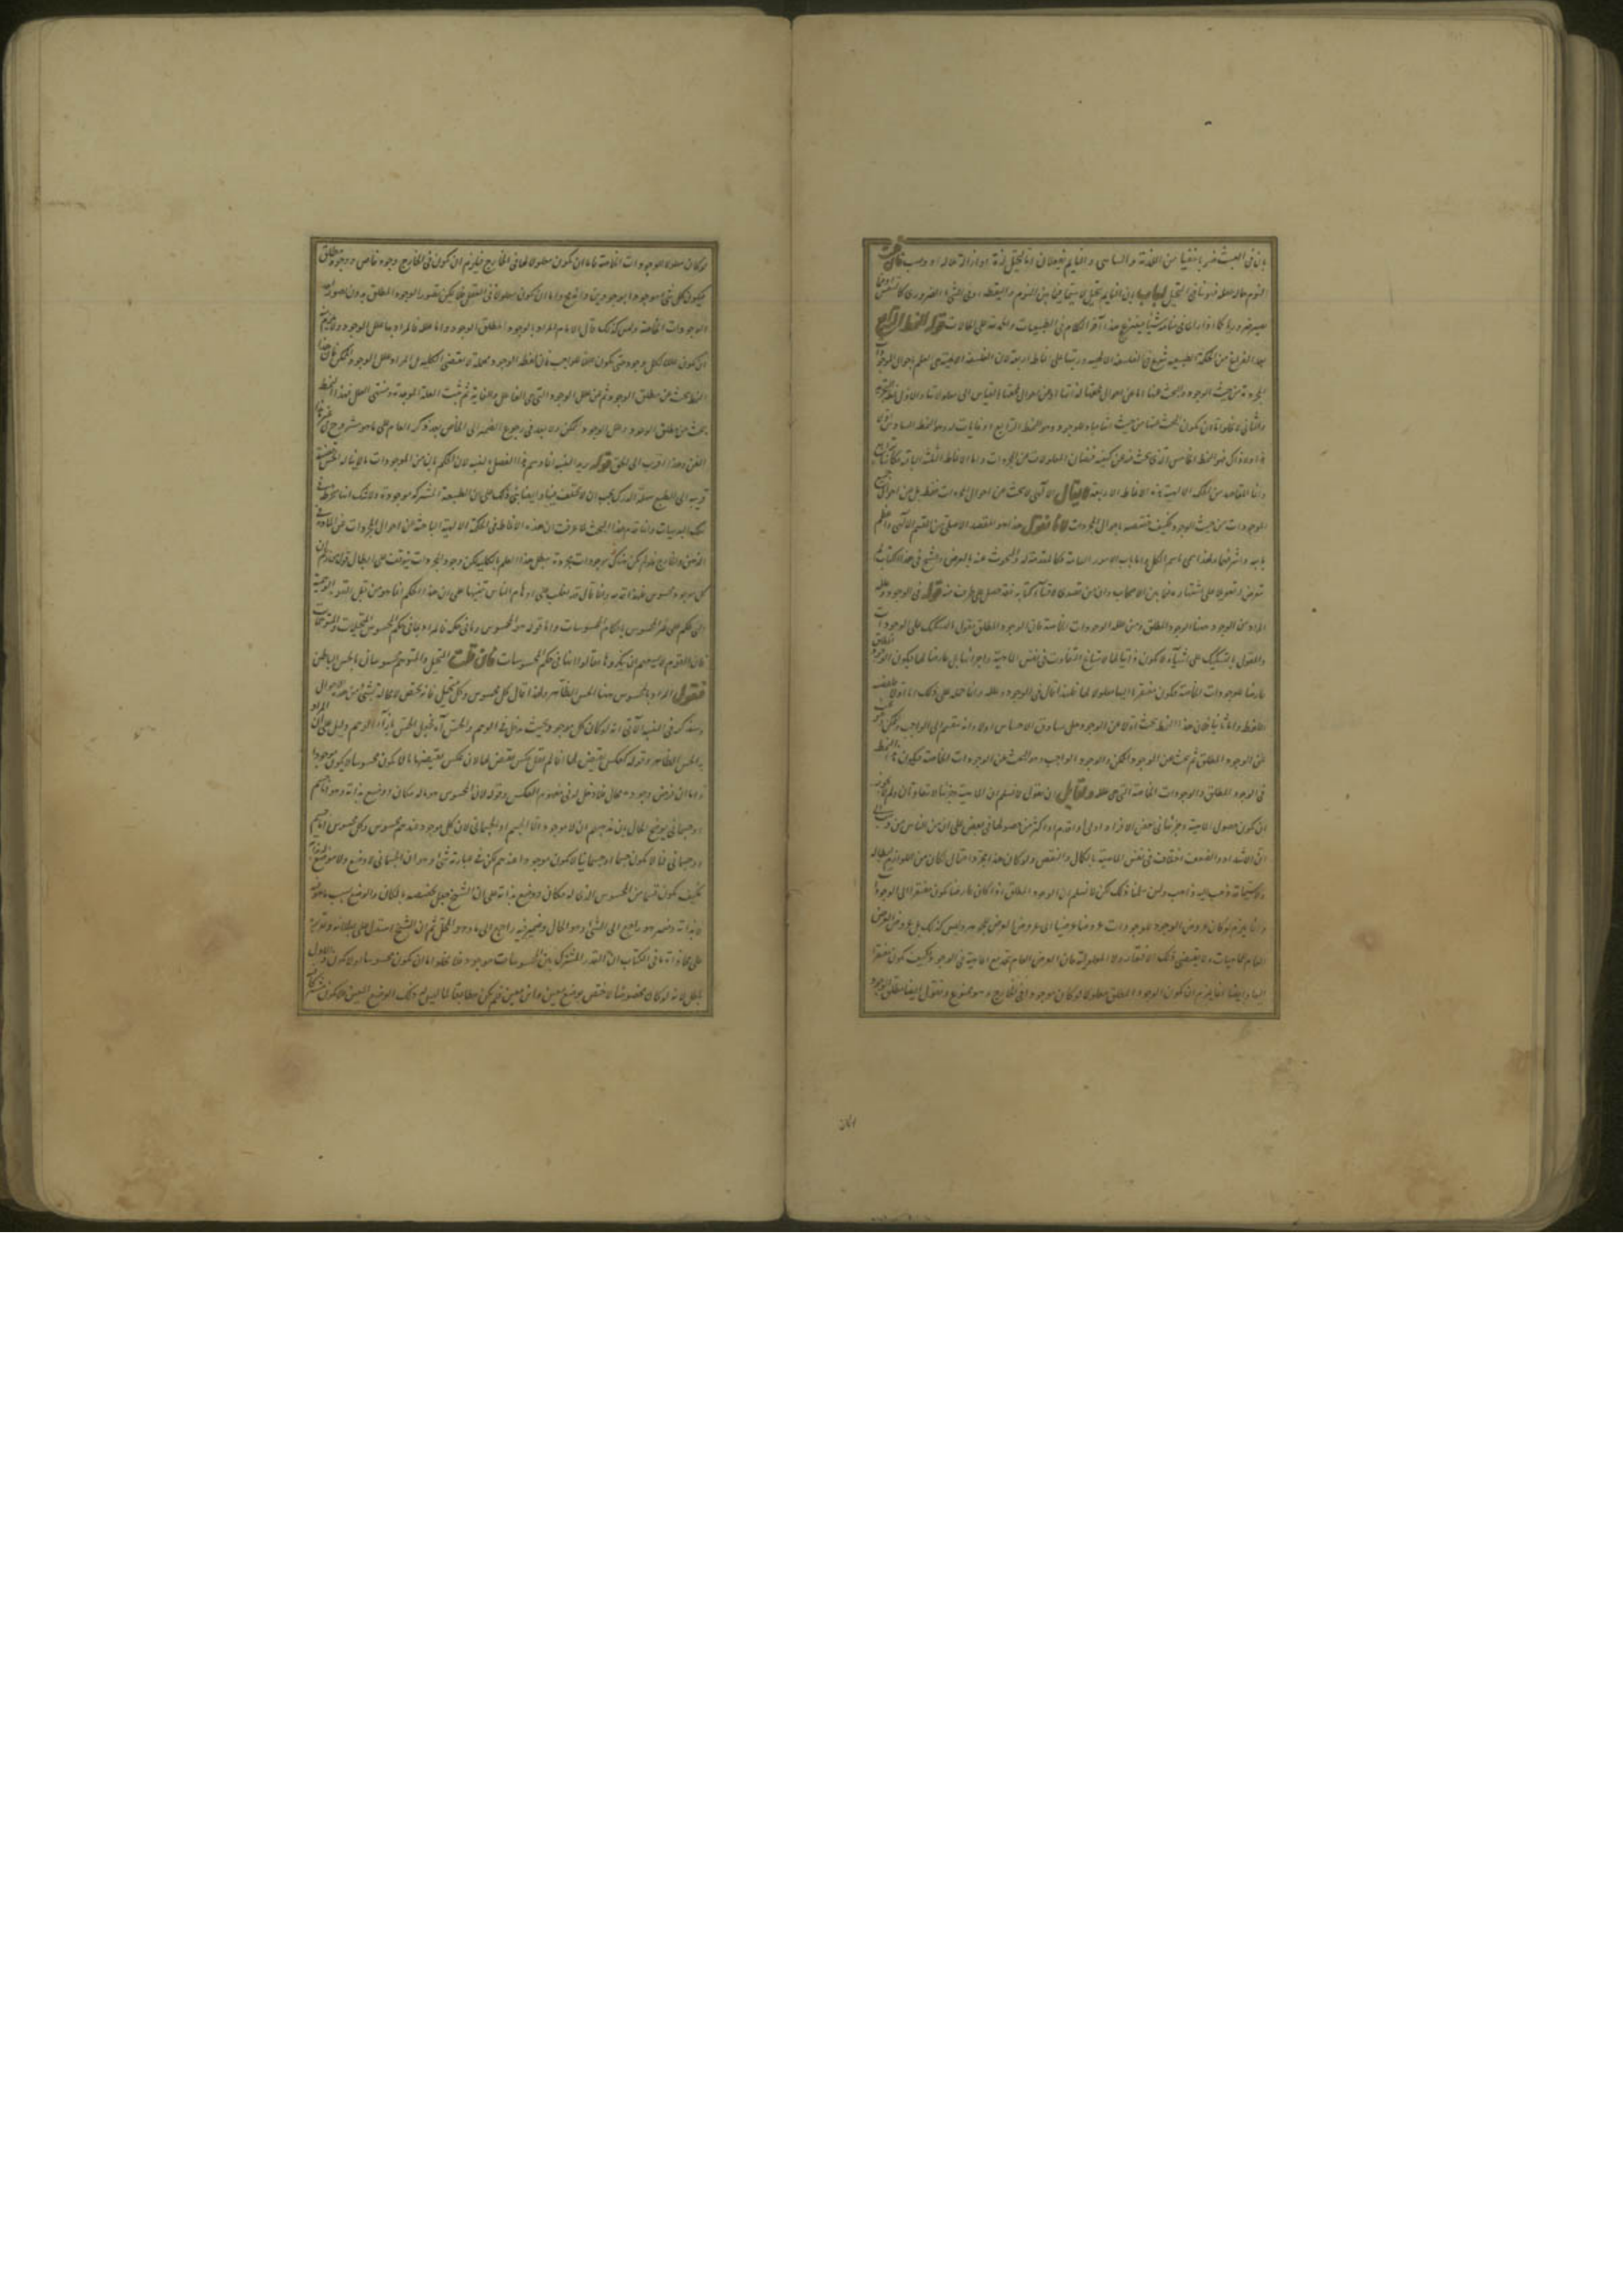 بان فى العبث ضربا خفيا من اللذة والساهى والنايم يفعلان اما لتخيل لذة او ازالة حالة او وصب فان
النوم حالة فهو نافى التخيل اجاب بان النايم يتخيل لا سيما فيما بين النوم واليقظة او فى الشىء الضرورى كالتنفس
يصير ضروريا كما اذا راى فى منامه شيئا مفزع هذا آخر الكلام فى الطبيعيات والحمد لله على قوله النمط الرابع
بعد الفراغ من الحكمة الطبيعية شرع فى الفلسفة الالهية ورتبها على انماط اربعة لان الفلسفة الالهية هى العلم باحوال الموجودات
المجردة من حيث الوجود والبحث هناك اما عن احوال
والثانى لا يخلو اما ان يكون البحث عنها من حيث انها مباد للوجود وهو النمط الرابع او غايات له وهو النمط السادس
فهو النمط الخامس الذى يبحث فيه عن كيفية فيضان المعلولات من المجردات واما الانماط الثلث الباقية
الالهية هذه الانماط الاربعة لا يقال الالهى لا يبحث عن احوال المجردات فقط بل عن احوال جميع
الموجودات من حيث الوجود فكيف خصصه باحوال المجردات لانا نقول هذا هو المقصد الاصلى من القسم الالهى واعظم
ابوابه واشرفها ولهذا سمى باسم الكل واما باب الامور العامة فكالمقدمة له والبحوث عنه بالعرض والشيخ فى هذا الكتاب لم
قوله فى الوجود وعلله
المراد من الوجود ههنا الوجود المطلق ومن علله الوجودات الخاصة فان الوجود المطلق مقول بالتشكيك على الوجودات
والمقول بالتشكيك على اشياء لا يكون ذاتيا لها لامتناع التفاوت فى نفس الماهية واجزائها بل عارضا لها فيكون الوجود المطلق
عارضا للوجودات الخاصة فيكون مفتقرا اليها معلولا لها فلهذا قال فى الوجود وعلله وانما حمله على ذلك اما اولا
اللفظ واما ثانيا فلان هذا النمط يبحث اولا عن الوجود وانه منقسم الى الواجب والممكن
عن الوجود المطلق ثم يبحث عن الوجود الممكن والوجود الواجب وهو البحث عن الوجودات الخاصة فيكون هذا النمط
فى الوجود المطلق والوجودات الخاصة التى هى علله ولقايل ان يقول لا نسلم ان الماهية وجزئها لا يتفاوتان ولم لا يجوز
ان يكون حصول الماهية وجزئها فى بعض الافراد اولى او اقدم او اشد من حصولها فى بعض على ان من الناس من ذهب الى
ان الاشد والاضعف اختلاف فى نفس الماهية بالكمال والنقص
ذهب اليه ذاهب ولئن سلمنا ذلك لكن لا نسلم ان الوجود المطلق اذا كان عارضا يكون مفتقرا الى الوجودات
وانما يلزم لو كان عروض الوجود للوجودات عروضا عينيا اى عروض العرض للجوهر وليس كذلك بل عروض العرض
العام للماهيات ولا يقتضى ذلك الافتقار ولا المعلولية فان العرض العام متحد مع الماهية فى الوجود فكيف يكون مفتقرا
اليها وايضا انما يلزم ان يكون الوجود المطلق معلولا لو كان موجودا فى الخارج وهو ممنوع ونقول ايضا مطلق الوجود
لو كان
لو كان معلولا للوجودات الخاصة فاما ان يكون معلولا لها فى الخارج فيلزم ان يكون فى الخارج وجود خاص ووجود مطلق
فيكون كل شىء موجودا بوجودين واما ان يكون معلولا فى العقل فلا يمكن تصور الوجود المطلق بدون تصور
الوجودات الخاصة وليس كذلك قال الامام المراد بالوجود مطلق الوجود واما علله فالمراد بها علل الوجود ولا يجب
ان يكون علة لكل موجود حتى يكون علة للواجب فان لفظة الوجود مهملة لا يقتضى الكلية بل المراد علل الوجود الممكن فان هذا
النمط يبحث عن مطلق الوجود ثم عن علل الوجود التى هى الفاعل والغاية ثم يثبت العلة الموجدة ومنتهى العلل فهذا النمط
يبحث عن مطلق الوجود وعلل الوجود الممكن ولا بعد فى رجوع الضمير الى الخاص بعد ذكر العام على ما هو مشروح فى غير هذا
الفن وهذا اقرب الى الحق قوله يريد التنبيه انما وسم هذا الفصل بالتنبيه لان الحكم بان من الموجودات ما لا يناله الحس قضية
قريبة الى الطبع
هذا البحث لما عرفت ان هذه الانماط فى الحكمة الالهية الباحثة عن احوال المجردات عن المادة فى
الذهن والخارج فلو لم يكن هناك موجودات مجردة يبطل هذا العلم بالكلية لكن وجود المجردات يتوقف على ابطال قول من زعم ان
كل موجود محسوس فلهذا قدمه وانما قال قد يغلب على اوهام الناس تنبيها على ان هذا الحكم انما هو من قبل القوة الوهمية
التى تحكم على غير المحسوس باحكام المحسوسات واما قوله هو المحسوس وما فى حكمه فالمراد بما فى حكم المحسوس المتخيلات والمتوهمات
فان القوم لا يمكنهم ان ينكروها فقالوا انها فى حكم المحسوسات فان قلت المتخيل والمتوهم محسوسان بالحس الباطن
فنقول المراد بالمحسوس ههنا الحس الظاهر ولهذا قال كل محسوس وكل متخيل فانه يختص لا محالة بشىء من هذه الاحوال
وسيذكر فى التنبيه الآتى انه لو كان كل موجود بحيث يدخل فى الوهم والحس آه فجعل الحس بازاء الوهم دليل على ان المراد
به الحس الظاهر وقوله كعكس نقيض لها انما لم يقل عكس نقيض لها لان عكس نقيضها ما لا يكون محسوسا لا يكون موجودا
واما ان فرض وجوده محال فلا دخل له فى مفهوم العكس وقوله لان المحسوس هو ما له مكان او وضع بذاته وهو اما جسم
او جسمانى يوضح المحال بان مذهبهم ان لا موجود الا الجسم او الجسمانى لان كل موجود عندهم محسوس وكل محسوس اما جسم
او جسمانى فما لا يكون جسما او جسمانيا لا يكون موجودا عندهم لكن فى عبارته شىء وهو ان الجسمانى لا وضع ولا موضع له بذاته
فكيف يكون قسما من المحسوس الذى له مكان او وضع بذاته على ان الشيخ جعل تخصصه بالمكان والوضع بسبب ما هو فيه
لا بذاته وضمير هو راجع الى الشىء وهو الحال وضمير فيه راجع الى ما وهو المحل ثم ان الشيخ استدل على بطلانه
على محاذاة ما فى الكتاب ان القدر المشترك بين المحسوسات موجود فلا يخلو اما ان يكون محسوسا او لا يكون والاول
باطل لانه لو كان محسوسا لاختص بوضع معين واين معين فلم يكن مطابقا لما ليس له ذلك الوضع المعين فلا يكون مشتركا